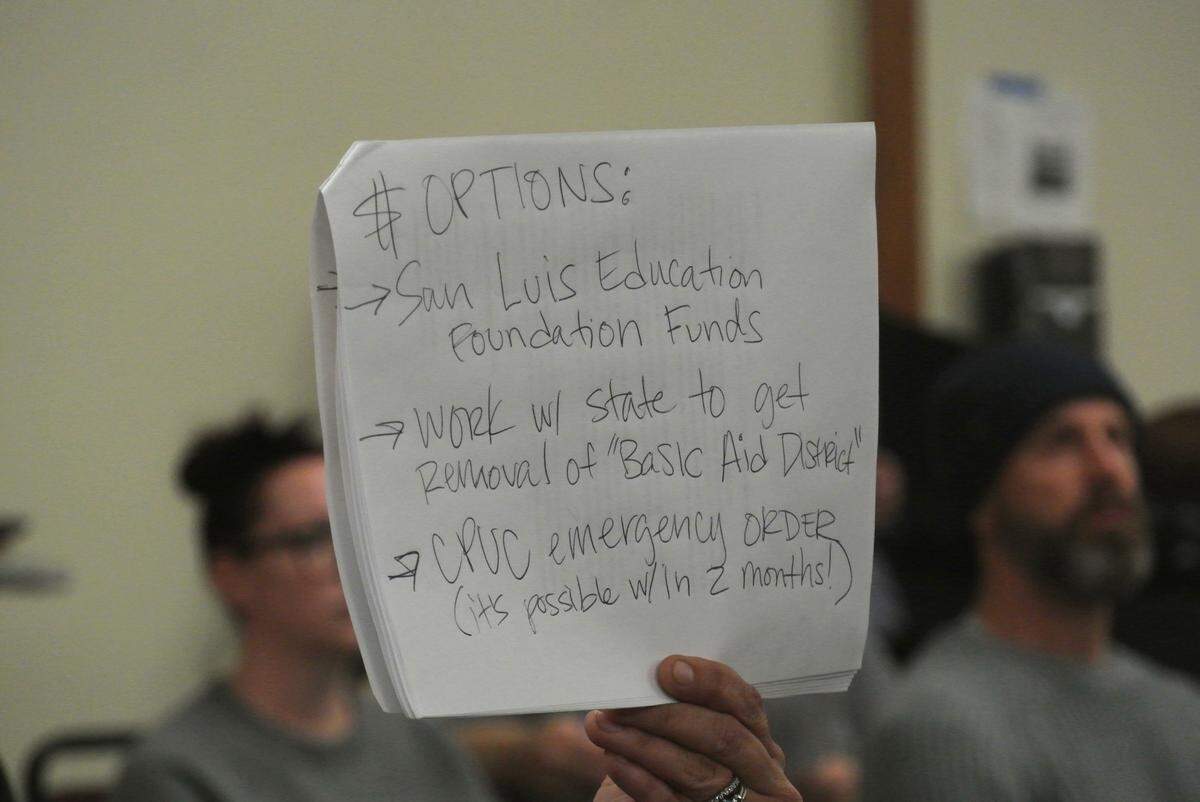 $ OPTIONS:
→ San Luis Education
Foundation Funds
→ WORK w/ state to get
Removal of "Basic Aid District"
→ CPUC emergency ORDER
(it's possible w/in 2 months!)